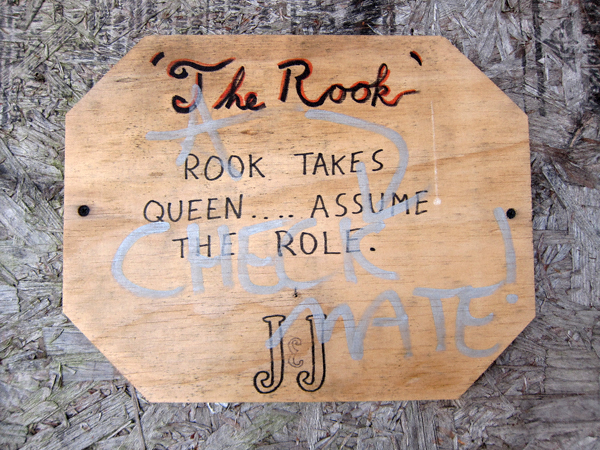 'The Rook'
ROOK TAKES
QUEEN.... ASSUME
THE ROLE.
CHECK
MATE!
J&J